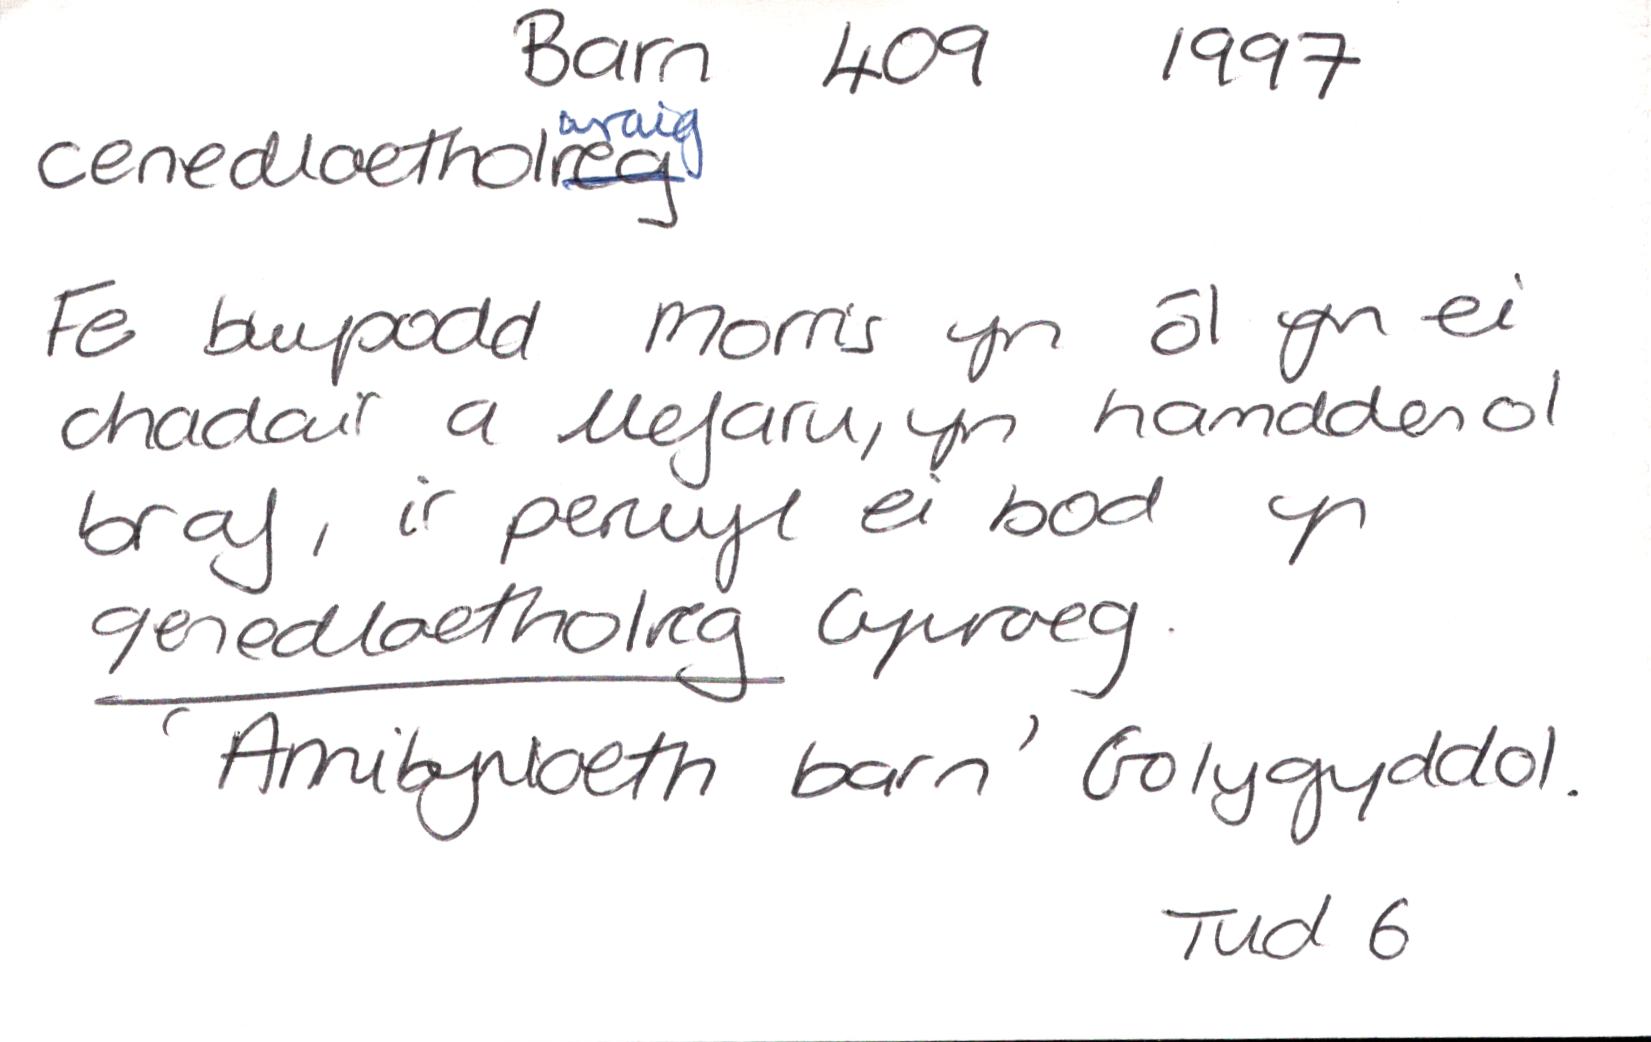 Barn 409 1997
wraig
cenedlaetholreg
Fe bwysodd Morris yn ôl yn ei
chadair a llefaru, yn hamddenol
braf, ir perwyl ei bod yn
genedlaetholreg Gymraeg.
'Annibyniaeth barn' Golygyddol.
Tud 6